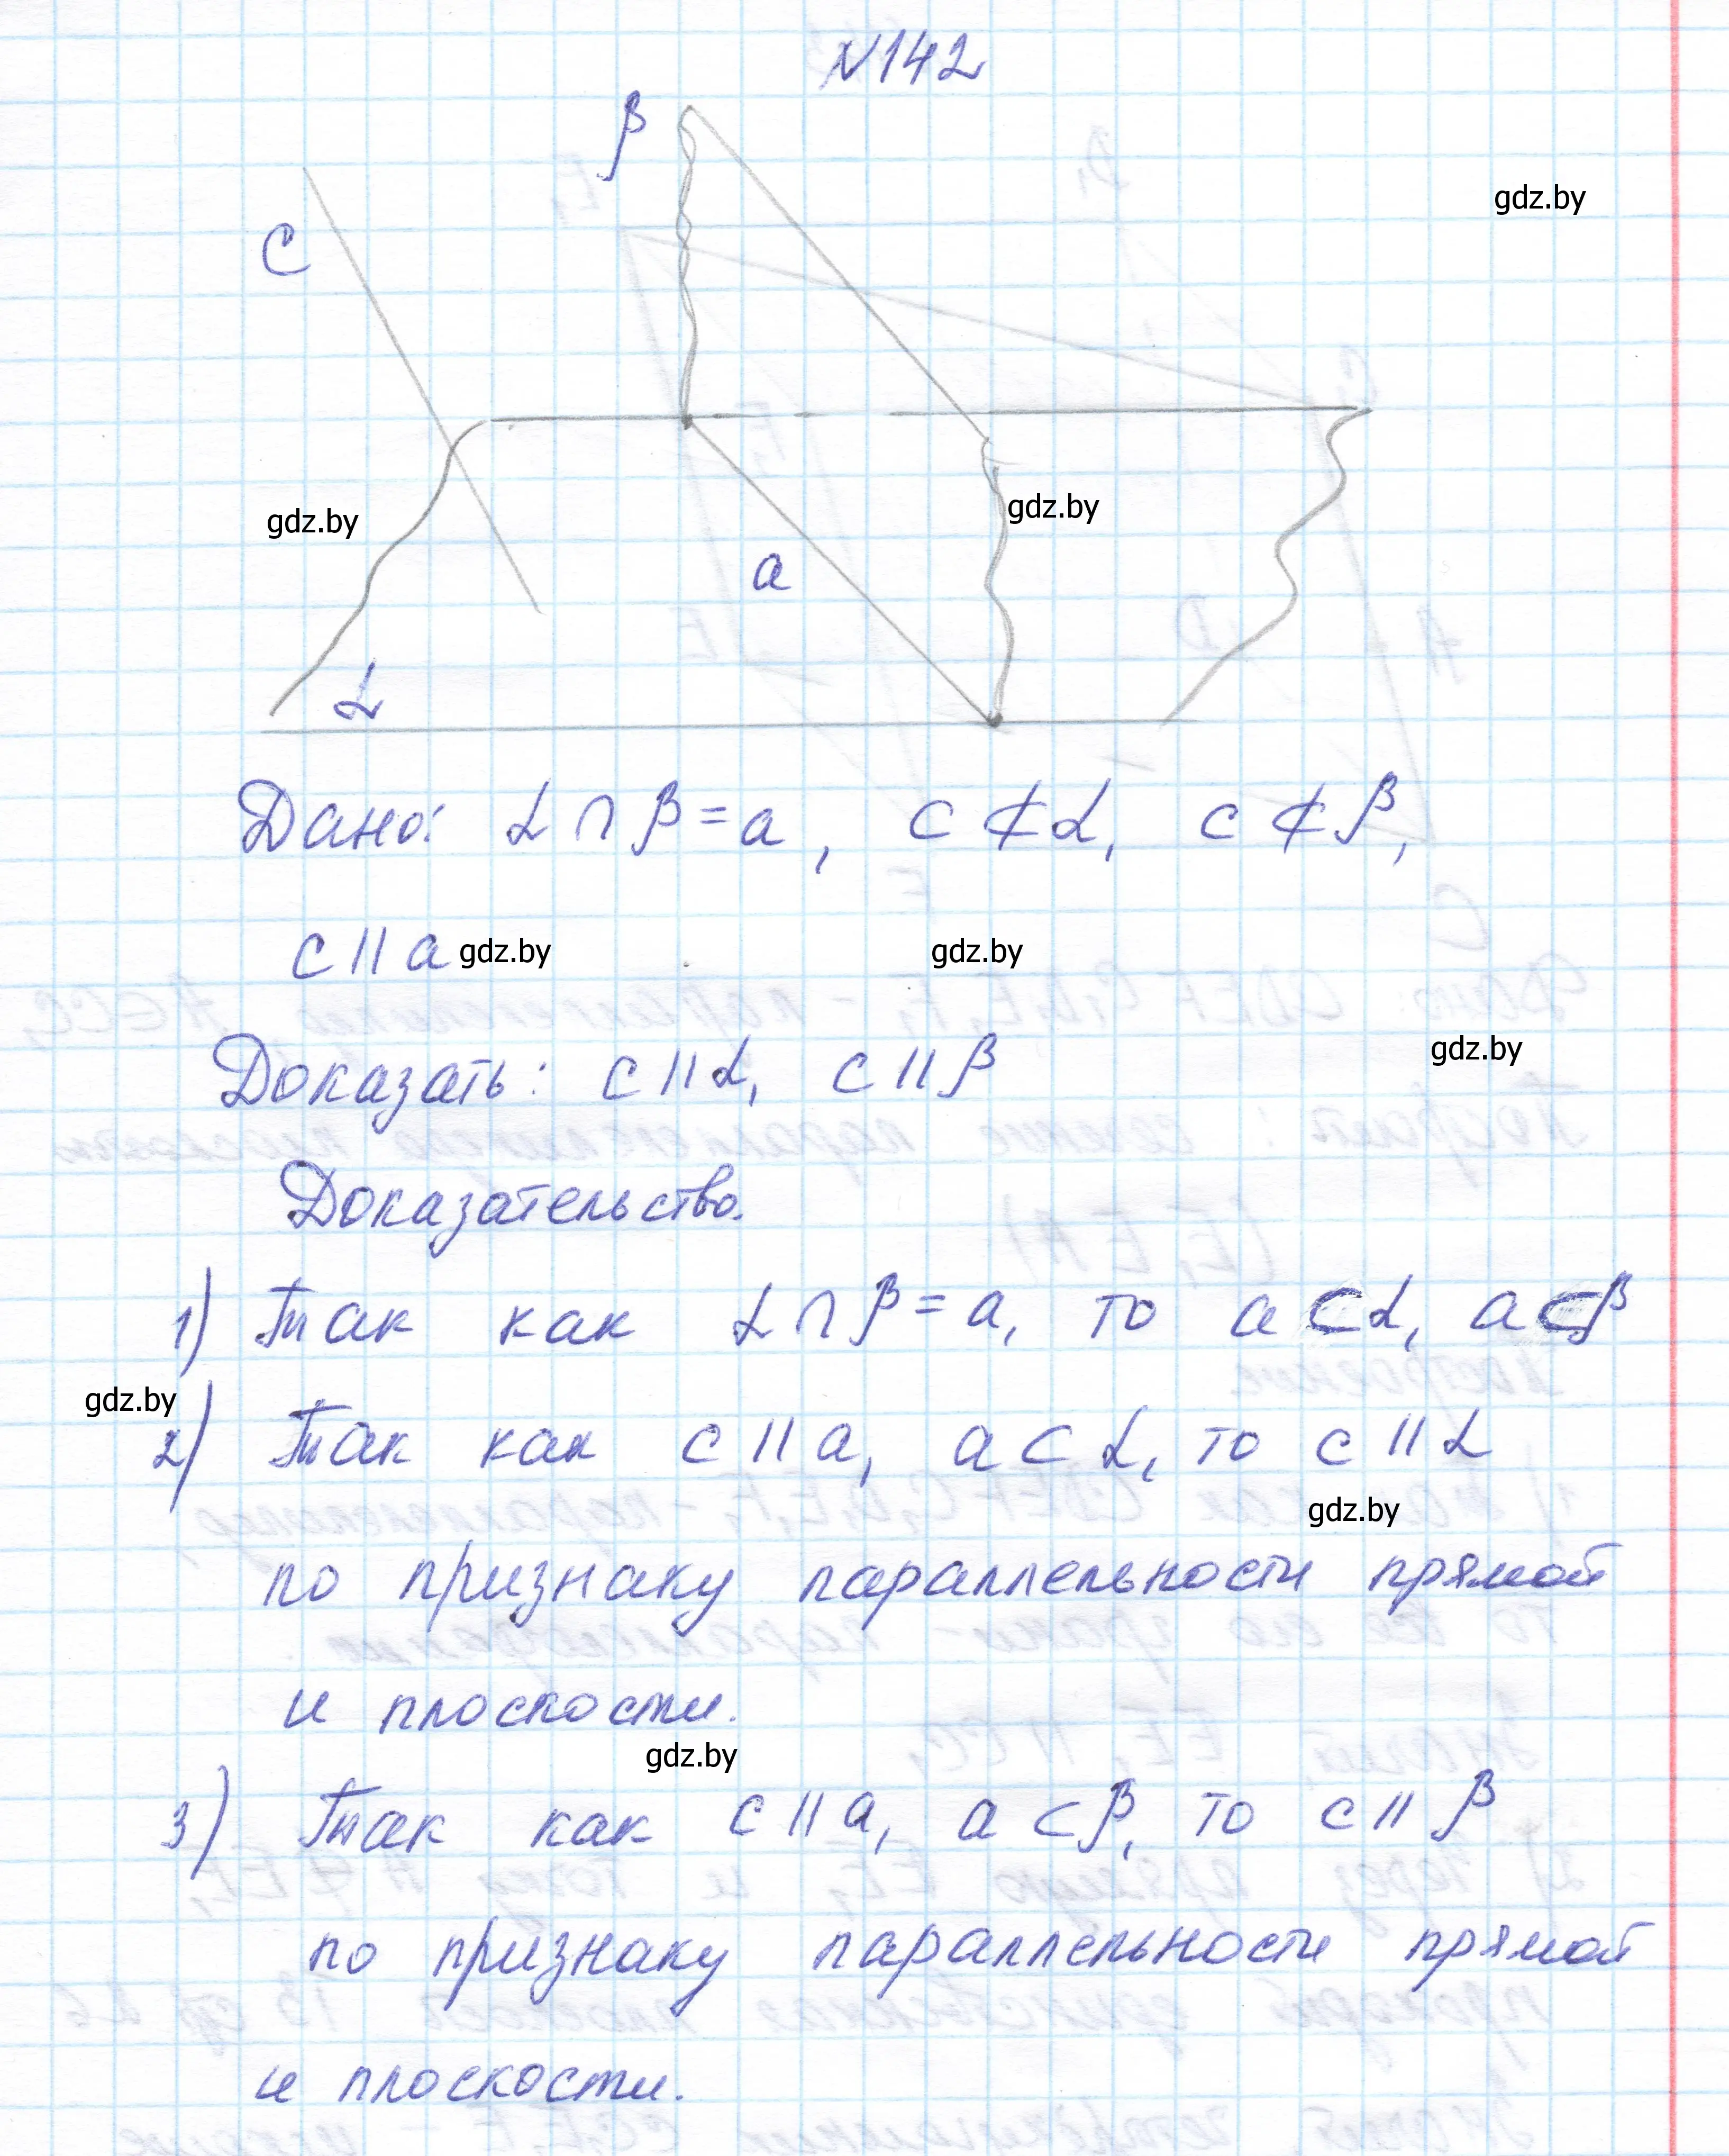 N142
β
gdz.by
C
gdz.by
gdz.by
a
α
Дано: α ∩ β = a, c ⊄ α, c ⊄ β,
c || a gdz.by gdz.by
gdz.by
Доказать: c || α, c || β
Доказательство.
1) Так как α ∩ β = a, то a ⊂ α, a ⊂ β
gdz.by
2) Так как c || a, a ⊂ α, то c || α
gdz.by
по признаку параллельности прямой
и плоскости.
gdz.by
3) Так как c || a, a ⊂ β, то c || β
по признаку параллельности прямой
и плоскости.